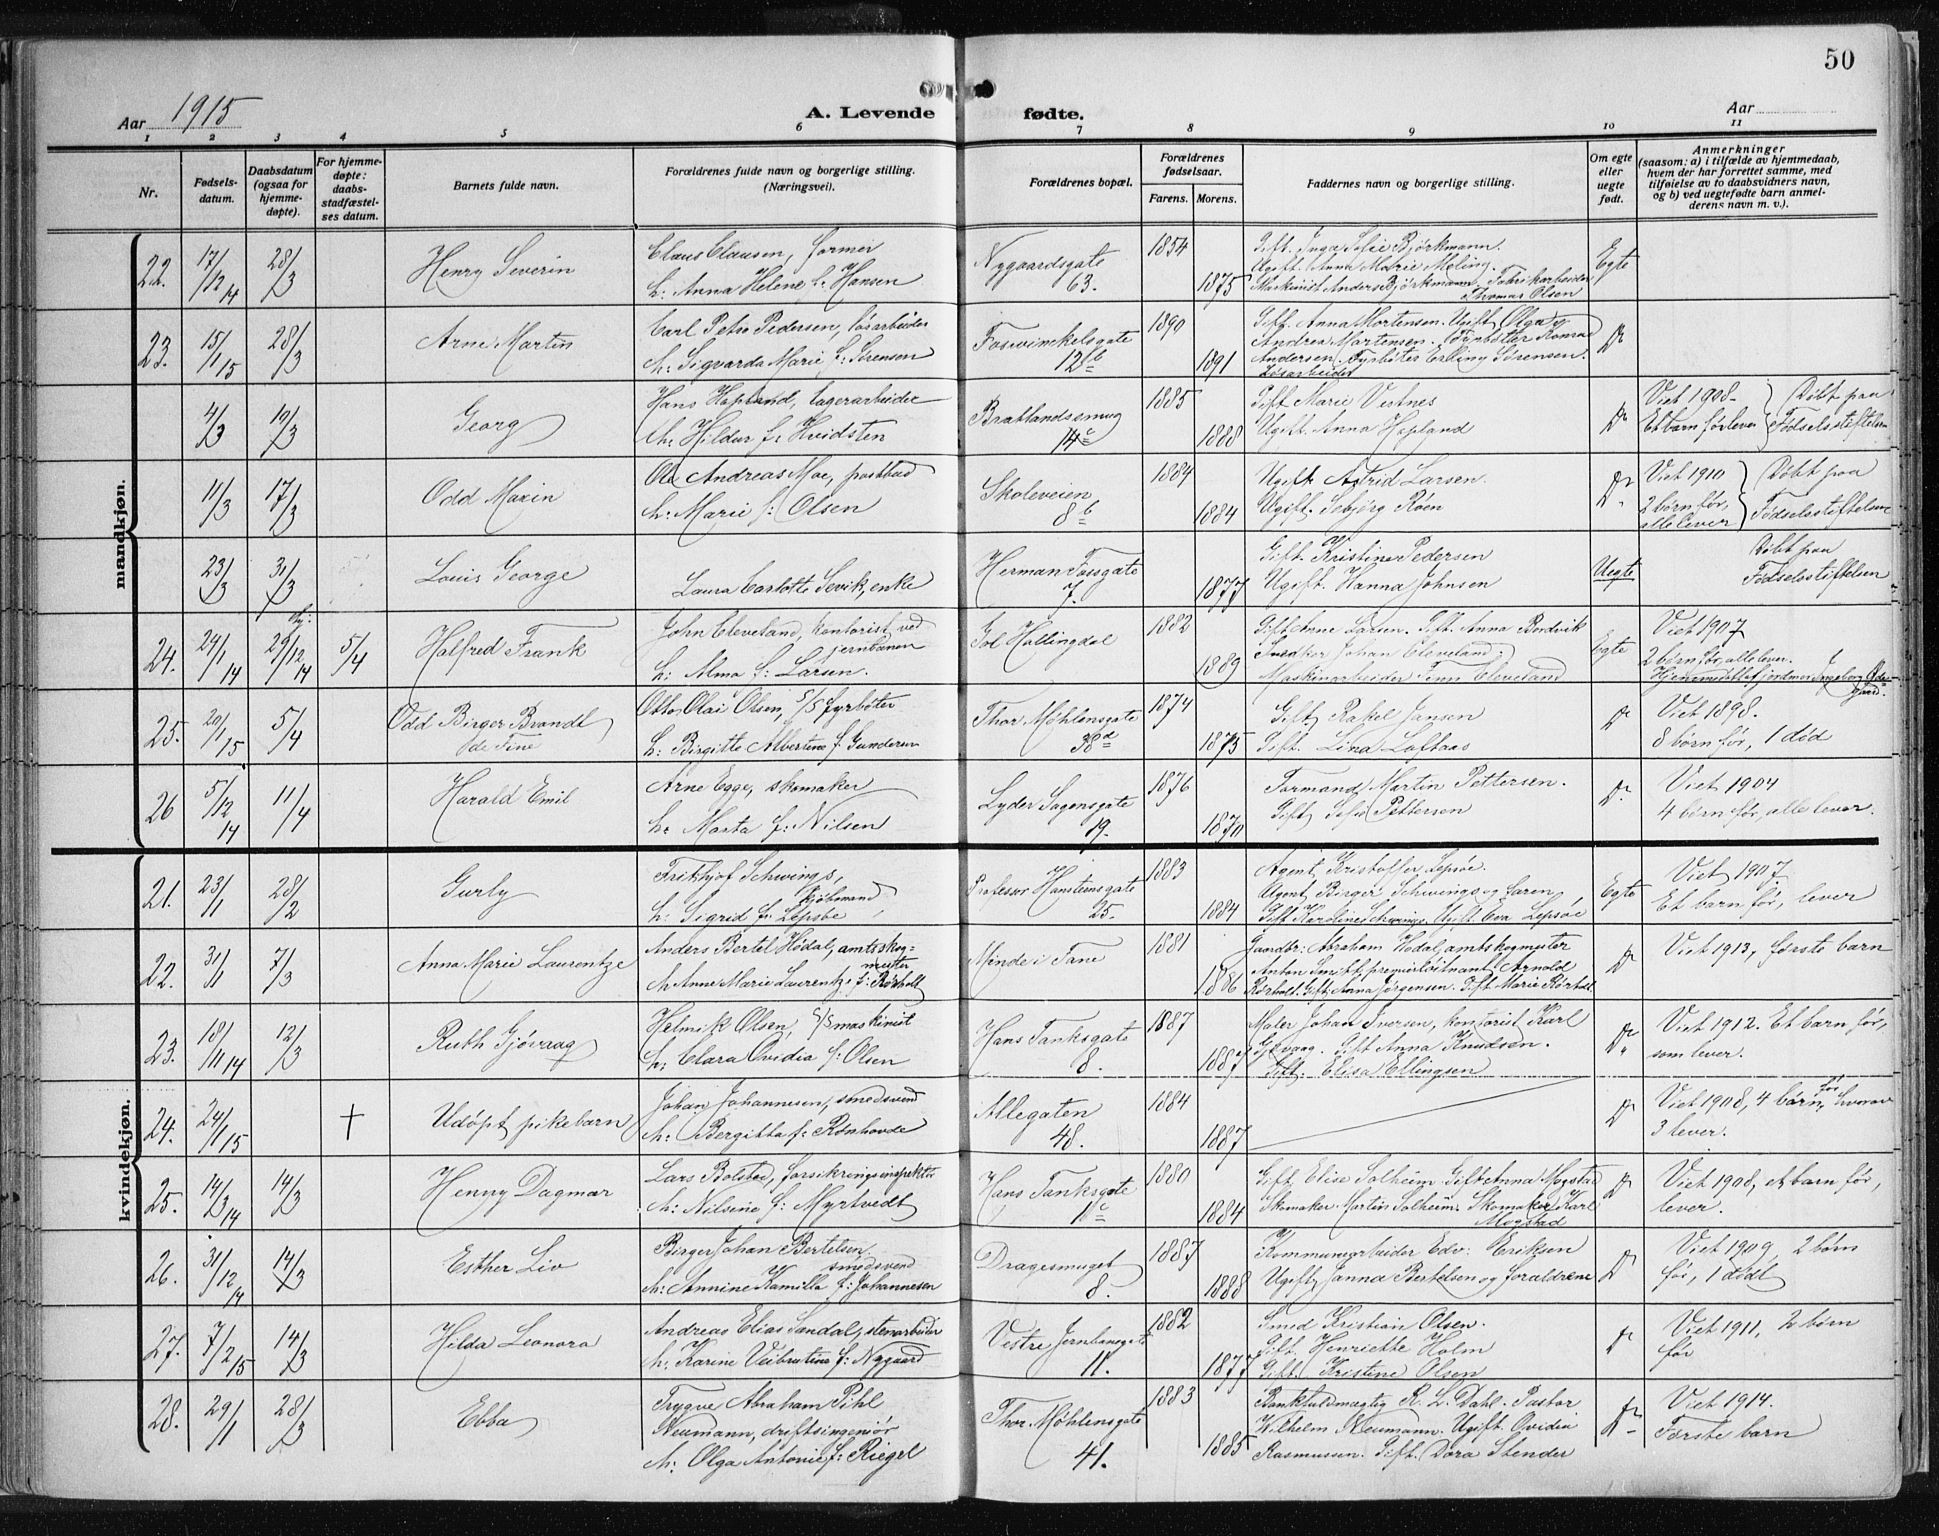 50
Aar 1915
A. Levende fødte.
Aar
1 2 3 4 5 6 7 8 9 10 11
Nr.
Fødsels-
datum.
Daabsdatum
(ogsaa for
hjemme-
døpte).
For hjemme-
døpte:
daabs-
stadfæstel-
ses datum.
Barnets fulde navn.
Forældrenes fulde navn og borgerlige stilling.
(Næringsvei).
Forældrenes bopæl.
Forældrenes
fødselsaar.
Farens. Morens.
Faddernes navn og borgerlige stilling.
Om egte
eller
uegte
født.
Anmerkninger
(saasom: a) i tilfælde av hjemmedaab,
hvem der har forrettet samme, med
tilføielse av to daabsvidners navn,
og b) ved uegtefødte barn anmel-
derens navn m. v.).
mandkjøn.
22. 17/12 14 28/3 Henry Severin
Claus Clausen, former
h. Anna Helene f. Hansen
Nygaardsgate
63.
1854
1875
Gift. Inga Sofie Bjørkmann.
Ugift. Anna Marie Meling.
Maskinist Anders Bjørkmann, Fabrikarbeider
Thomas Olsen
Egte
23. 15/1 15 28/3 Arne Martin
Carl Petre Pedersen, løsarbeider
h. Sigvarda Marie f. Sørensen
Fosswinkelsgate
12b
1890
1891
Gift. Anna Mortensen. Ugift. Olga
Andrea Mortensen. Fyrbøter Konrad
Andersen. Fyrbøter Erling Sørensen.
Løsarbeider
Do
4/3 19/3 Georg
Hans Hopland, lagerarbeider
h. Hildur f. Hvidsten
Bratlandsmug
14c
1885
1888
Gift Marie Vestnes
Ugift. Anna Hopland
Do
Viet 1908.
Et barn før, lever
Døbt paa
Fødselsstiftelsen
11/3 17/3 Odd Maxin
Ole Andreas Moe, postbud
h. Marie f. Olsen
Skoleveien
8b
1884
1884
Ugift. Astrid Larsen.
Ugift. Røen
Do
Viet 1910
2 børn før,
alle lever
Døbt paa
Fødselsstiftelsen
23/3 31/3 Louis George
Laura Carlotte Sevik, enke
Herman Fossgate
7.
1877
Gift. Kristina Pedersen
Ugift. Hanna Johnsen
Uegte
Døbt paa
Fødselsstiftelsen
24. 24/1 14 29/12 14 5/4 Halfred Frank
John Cleveland, kontorist ved
jernbanen
h. Alma f. Larsen.
Gol Hallingdal
1882
1889
Gift Anne Larsen. Gift. Anna Bordvik
Snedker Johan Cleveland;
Maskinarbeider Finn Cleveland
Egte
Viet 1907
2 børn før, alle lever.
Hjemmedøbt af jordmor Ingeborg Øde-
gaard.
25. 20/1 15 5/4 Odd Birger Brandt
de Fine
Otto Olai Olsen, S/S fyrbøter
h. Birgitte Albertine f. Gundersen
Thor Møhlensgate
38d
1874
1875
Gift. Rakel Jansen
Gift. Lina Loftaas
Do
Viet 1898.
8 børn før, 1 død
26 5/12 14 11/4 Harald Emil
Arne Egge, skomaker
h. Marta f. Nilsen
Lyder Sagensgate
19.
1876
1870
Formand Martin Pettersen.
Gift. Sofie Pettersen
Do
Viet 1904
4 børn før, alle lever.
kvindekjøn.
21. 23/1 28/2 Gurly
Frithjof Schwings,
kjøbmand
h. Sigrid f. Lepsøe
Professor Hansteensgate
25.
1883
1884
Agent Kristoffer Lepsøe.
Agent Birger Schwings og faren,
Gift Karoline Schwings, Ugift. Eva Lepsøe
Egte
Viet 1907.
Et barn før, lever
22. 31/1 7/3 Anna Marie Laurentze
Anders Bertel Hødal, amtsskog-
mester
h. Anne Marie Laurentze f. Rørholt
Minde i Fane
1881
1886
Gandbr: Abraham Hødal, amtskogmester
Anton Smitt, premierløitnant Arnold
Rørholt. Gift: Anna Jørgensen. Gift Marie Rørholt.
Do
Viet 1913, første barn
23. 18/11 14 12/3 Ruth Gjøvaag
Helmik Olsen, S/S maskinist
h. Clara Ovidia f. Olsen
Hans Tanksgate
8.
1887
1887
Maler Johan Iversen, kontorist Karl
Gjøvaag. Gift Anna Knudsen.
Gift. Elisa Ellingsen
Do
Viet 1912. Et barn før,
som lever.
24. 24/1 15 † Udøpt pikebarn
Johan Johannesen, smedsvend
h. Bergitta f. Rønhovde
Allegaten
48.
1884
1887
Do
Viet 1908, 4 børn før, hvorav
3 lever.
25. 14/3 14 14/3 Henny Dagmar
Lars Bolstad, forsikringsinspektør
h. Nilsine f. Myrtvedt
Hans Tanksgate
1c
1880
1884
Gift. Elise Solheim Gift Anna Mogstad
Skomaker Martin Solheim. Skomaker Karl
Mogstad
Do
Viet 1908, et barn før,
lever.
26. 31/12 14 14/3 Esther Liv
Birger Johan Bertelsen.
smedsvend
h. Annine Kamilla f. Johannesen
Dragesmuget
8.
1887
1888
Kommunearbeider Edv: Eriksen
Ugift, Janna Bertelsen og forældrene
Do
Viet 1909, 2 børn
før, 1 dødt
27. 7/2 15 14/3 Hilda Leonora
Andreas Elias Sandal, stenarbeider
h. Karine Veibrutine f. Nygaard
Vestre Jernbanegate
11.
1882
1877
Smed Kristian Olsen.
Gift. Henriette Holm
Gift. Kristine Olsen
Do
Viet 1911, 2 børn
før
28. 29/1 28/3 Ebba
Trygve Abraham Pihl
Neumann, driftsingeniør
h. Olga Antonie f. Riegel
Thor Møhlensgate
41.
1883
1885
Bankfuldmægtig R. L. Dahl. Pastor
Wilhelm Neumann. Ugift. Ovidia
Rasmussen. Gift. Dora Stender
Do
Viet 1914.
Første barn